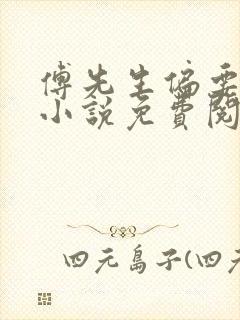 傅先生偏要
小說免費閱
四元島子(四元